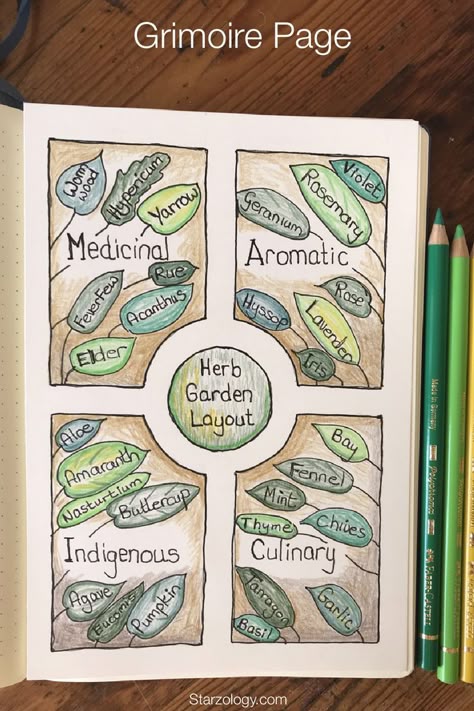 Grimoire Page
Worm
wood
Hypericum
Yarrow
Medicinal
Feverfew
Rue
Acanthus
Elder
Violet
Rosemary
Geranium
Aromatic
Rose
Hyssop
Lavender
Iris
Herb
Garden
Layout
Aloe
Amaranth
Nasturtium
Buttercup
Indigenous
Agave
Eucomis
Pumpkin
Bay
Fennel
Mint
Thyme
Chives
Culinary
Tarragon
Garlic
Basil
Made in Germany
Polychromos
FABER-CASTELL
Starzology.com